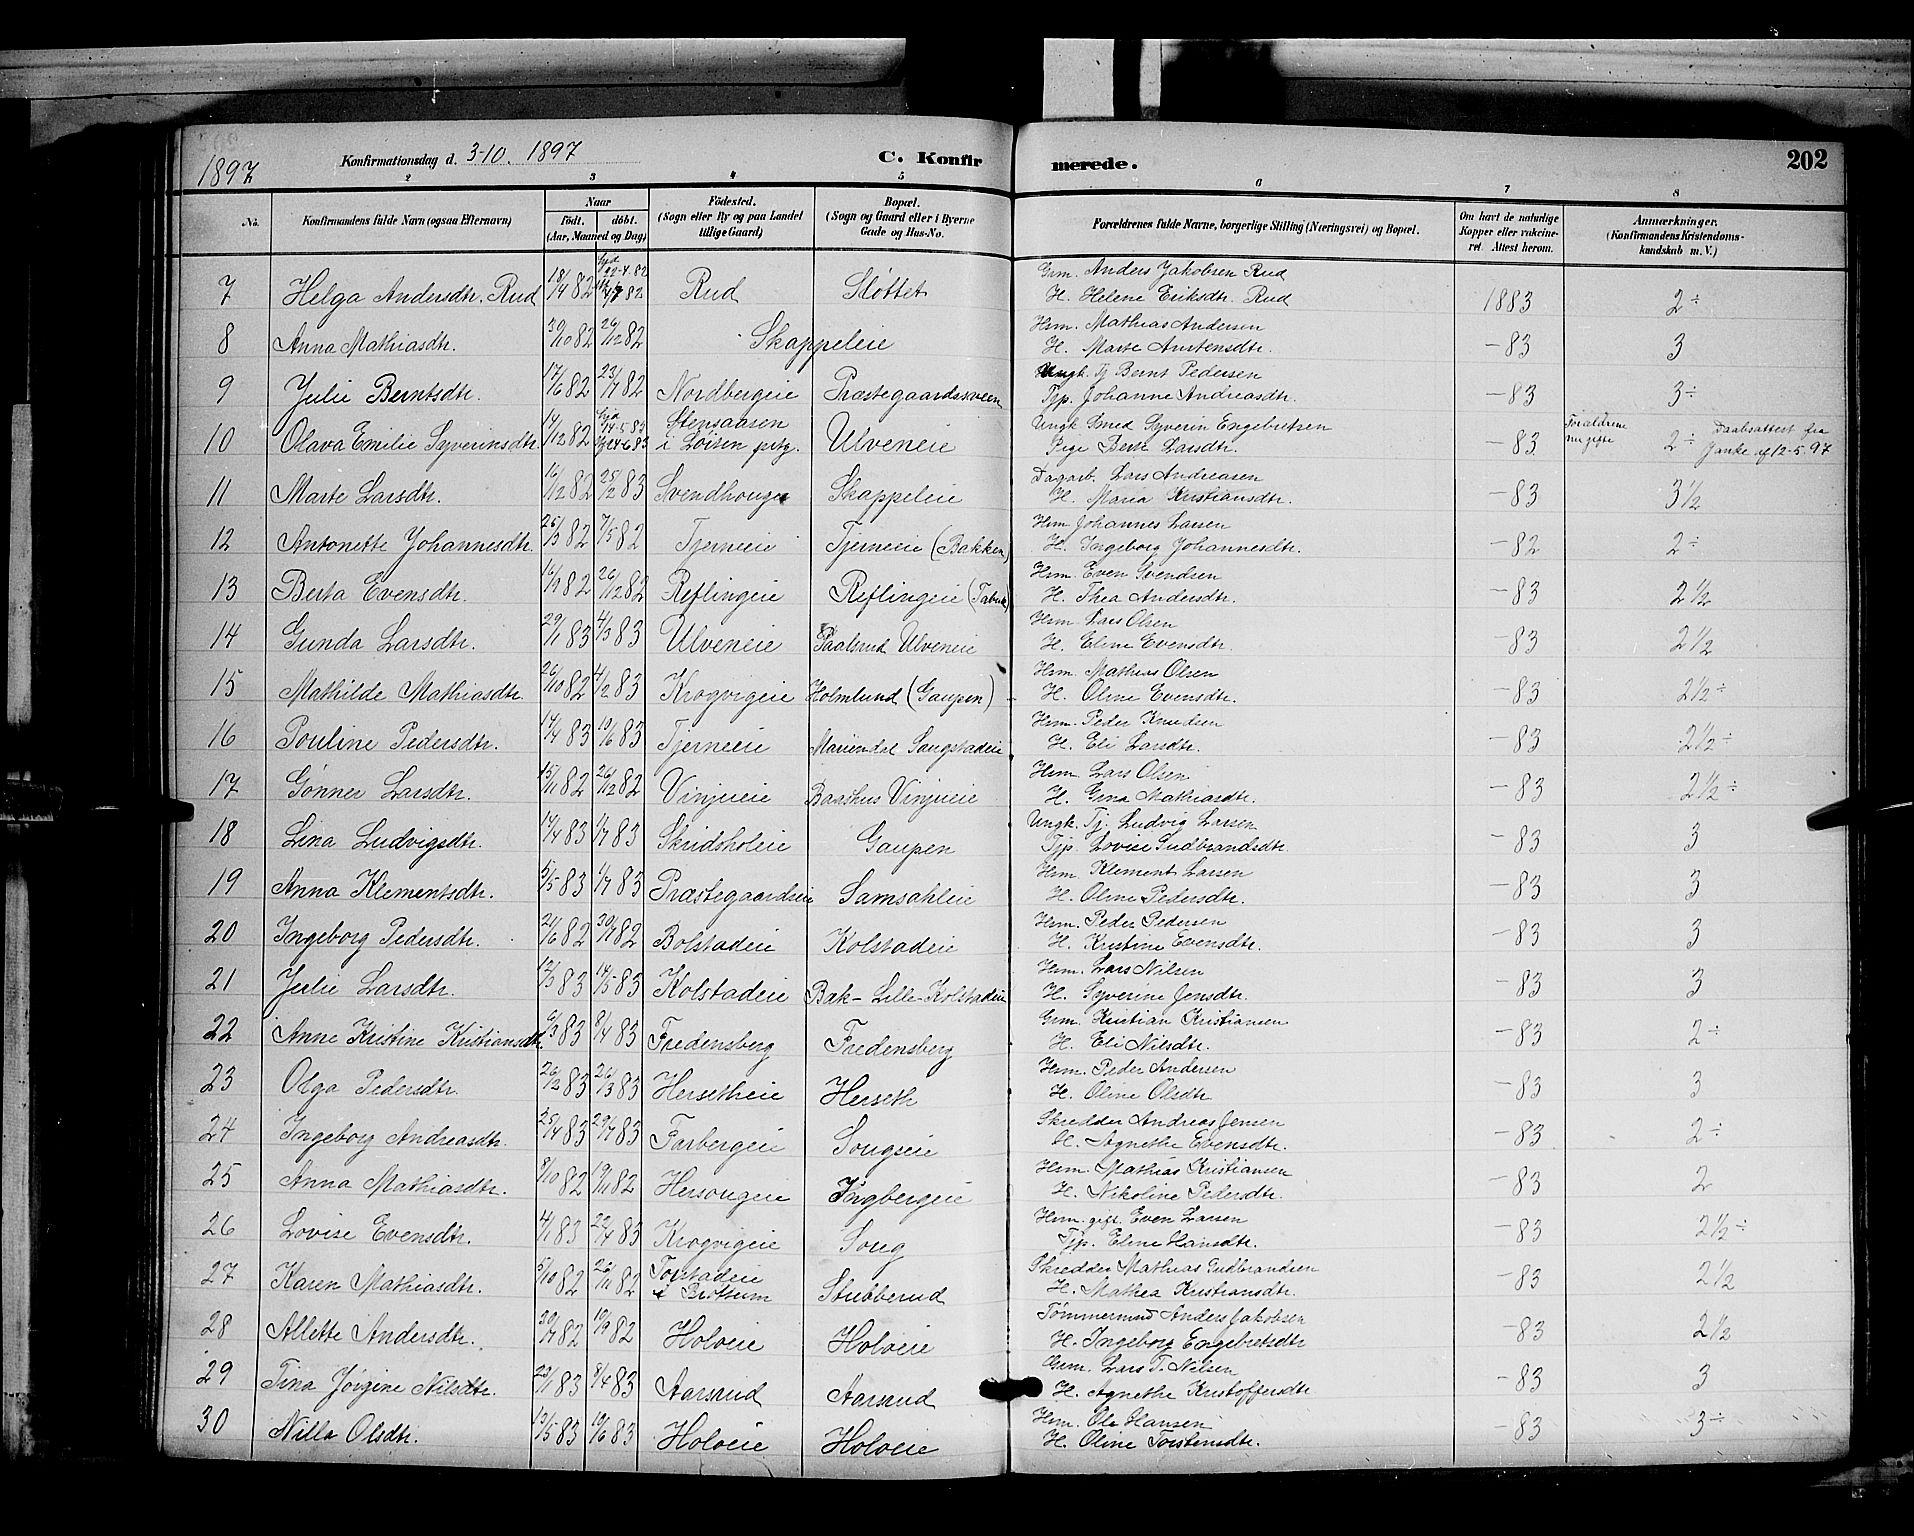 1897 Konfirmationsdag d. 3-10. 1897 C. Konfirmerede. 202
2 3 4 5 6 7 8
No. Konfirmandens fulde Navn (ogsaa Efternavn) Naar født. døbt. (Aar, Maaned og Dag) Fødested. (Sogn eller By og paa Landet tillige Gaard) Bopæl. (Sogn og Gaard eller i Byerne Gade og Hus-No. Forældrenes fulde Navne, borgerlige Stilling (Næringsvei) og Bopæl. Om havt de naturlige Kopper eller vakcineret. Attest herom. Anmærkninger. (Konfirmandens Kristendomskundskab m. V.)
7 Helga Andersdtr. Rud 18/4 82 22-4-82 Rud Sløttet Grm. Anders Jakobsen Rud H. Helene Eriksdtr. Rud 1883 2÷
8 Anna Mathiasdtr. 30/10 82 26/12 82 Skappeleie Hrm. Mathias Andersen H. Marte Amtensdtr. -83 3
9 Julie Berntsdtr. 17/6 82 23/7 82 Nordbergeie Præstegaardssveen Ungk. Tj Bernt Pedersen Tjp. Johanne Andreasdtr. -83 3÷
10 Olava Emilie Syverinsdtr. 14/12 82 14-5-83 24-6-83 Stensaasen i Løiten Ulveneie Ungk Smed Syverin Engebretsen Pige Berte Larsdtr. -83 Forældrene nu gifte 2÷ Daabsattest fra Janke af 12-5-97
11 Marte Larsdtr. 16/12 82 25/2 83 Svendhouge Skappeleie Dagarb. Lars Andreasen H. Maria Kristiansdtr. -83 3½
12 Antonette Johannesdtr. 26/3 82 7/5 82 Tjerneeie Tjerneeie (Bakken) Hrm Johannes Larsen H. Ingeborg Johannesdtr. -82 2÷
13 Berta Evensdtr. 16/9 82 26/12 82 Reflingeie Reflingeie Hrm. Even Svendsen H. Thea Andersdtr. -83 2½
14 Gunda Larsdtr. 29/1 83 4/3 83 Ulveneie Paalsrud Ulveneie Hrm Lars Olsen H. Eline Evensdtr. -83 2½
15 Mathilde Mathiasdtr. 26/10 82 4/2 83 Krogvigeie Holmlund (Gaupen) Hrm. Mathias Olsen H. Oline Evensdtr. -83 2½÷
16 Pouline Pedersdtr. 17/4 83 19/6 83 Tjerneeie Mariendal Saugstadeie Hrm. Peder Knudsen H. Eli Larsdtr. -83 2½÷
17 Gønner Larsdtr. 15/11 82 26/12 82 Vinjueie Baashus Vinjueie Hrm. Lars Olsen H. Gina Mathiasdtr. -83 2½÷
18 Lina Ludvigsdtr. 17/4 83 1/7 83 Skridsholeie Gaupen Ungk. Tj. Ludvig Larsen Tjp. Lovise Gudbrandsdtr. -83 3
19 Anna Klementsdtr. 5/5 83 1/7 83 Præstegaardseie Samsahleie Hrm Klement Larsen H. Oline Pedersdtr. -83 3
20 Ingeborg Pedersdtr. 21/6 82 30/7 82 Bolstadeie Kolstadeie Hrm. Peder Pedersen H. Kristine Evensdtr. -83 3
21 Julie Larsdtr. 12/3 83 14/5 83 Kolstadeie Bak-Lille-Kolstadeie Hrm. Lars Nilsen H. Syverine Jensdtr. -83 3
22 Anne Kristine Kristiansdtr. 6/3 83 8/4 83 Fredensberg Fredensberg Grm. Kristian Kristiansen H. Eli Nilsdtr. -83 2÷
23 Olga Pedersdtr. 26/2 83 26/3 83 Hersetheie Herseth Hrm. Peder Andersen H. Oline Olsdtr -83 3
24 Ingeborg Andreasdtr. 25/4 83 29/7 83 Farbergeie Sougseie Skredder Andreas Jensen H. Agnethe Evensdtr. -83 2÷
25 Anna Mathiasdtr. 8/10 82 19/11 82 Hersougeie Ingbergeie Hrm. Mathias Kristiansen H. Nikoline Pedersdtr. -83 2
26 Lovise Evensdtr. 4/1 83 22/4 83 Krogvigeie Soug Hrm. gift. Even Larsen Tjp. Eline Hansdtr. -83 2½÷
27 Karen Mathiasdtr. 5/10 82 26/11 82 Torstadeie i Brøttum Stubberud Skredder Mathias Gudbrandsen H. Mathea Kristiansdtr. -83 2½
28 Allette Andersdtr. 30/7 82 10/9 82 Holoeie Holoeie Tømmermand Anders Jakobsen H. Ingeborg Engebretsdtr -83 2½
29 Tina Jørgine Nilsdtr. 22/1 83 8/4 83 Aarsrud Aarsrud Grm. Lars T. Nilsen H. Agnethe Kristoffersdtr -83 3
30 Nilla Olsdtr. 13/5 83 10/6 83 Holoeie Holoeie Hrm. Ole Hansen H. Oline Torstensdtr. -83 3÷